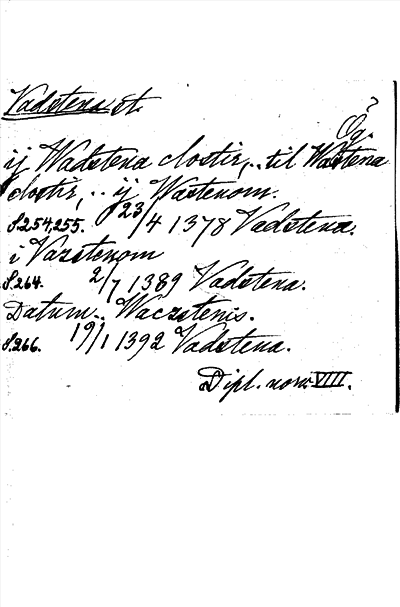 Vadstena st.
?
Ög.
ij Wadstena clostir, .. til Wastena
clostir, .. ij Wastenom.
S.254,255. 23/4 1378 Vadstena.
i Vazstenom
S.264. 2/7 1389 Vadstena.
Datum .. Waczstenis.
S.266. 19/1 1392 Vadstena.
Dipl. norv. VIII.